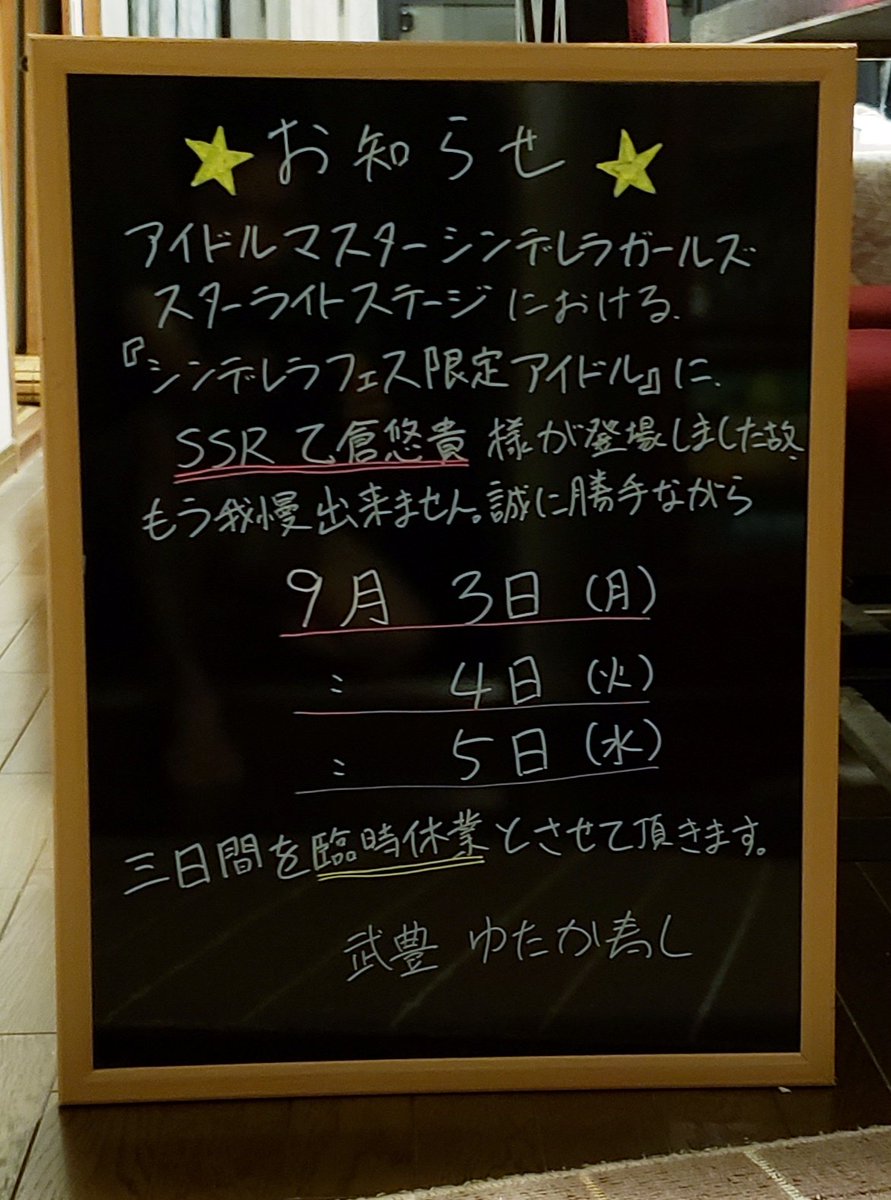 お知らせ
アイドルマスターシンデレラガールズ
スターライトステージにおける、
『シンデレラフェス限定アイドル』に、
SSR乙倉悠貴 様が登場しました故、
もう我慢出来ません。誠に勝手ながら
9月 3日(月)
: 4日(火)
: 5日(水)
三日間を臨時休業とさせて頂きます。
武豊 ゆたか寿し